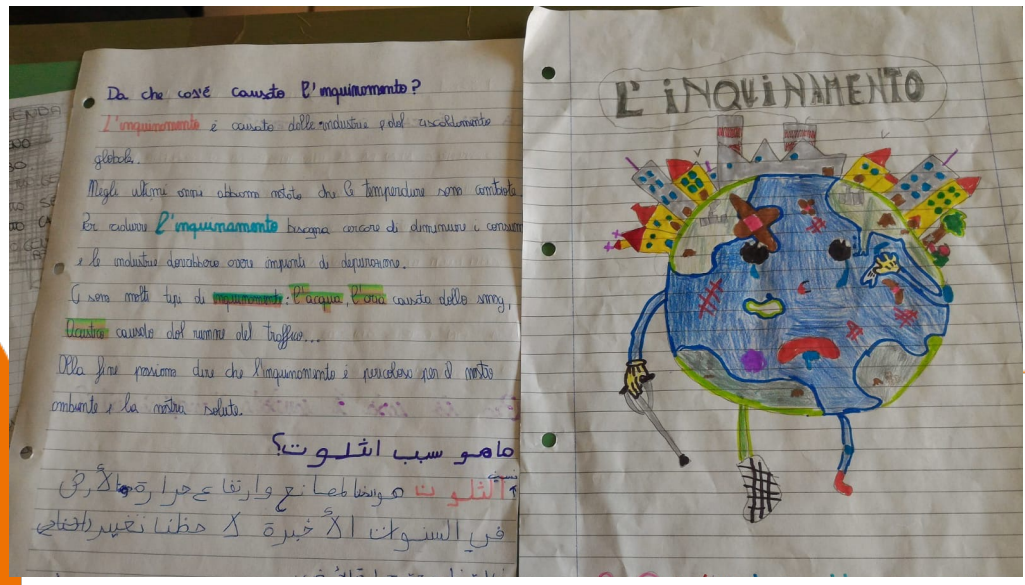 Da che cos'è causato l'inquinamento?
L'inquinamento è causato dalle industrie e dal riscaldamento
globale.
Negli ultimi anni abbiamo notato che le temperature sono cambiate.
Per ridurre l'inquinamento bisogna cercare di diminuire i consumi
e le industrie dovrebbero avere impianti di depurazione.
Ci sono molti tipi di inquinamento: l'acqua, l'aria causata dallo smog,
acustico causato dal rumore del traffico...
Alla fine possiamo dire che l'inquinamento è pericoloso per il nostro
ambiente e la nostra salute.
ماهو سبب التلوت؟
التلوت هو المصانع وارتفاع حرارة الأرض
في السنوات الأخيرة لاحظنا تغيير
L'INQUINAMENTO